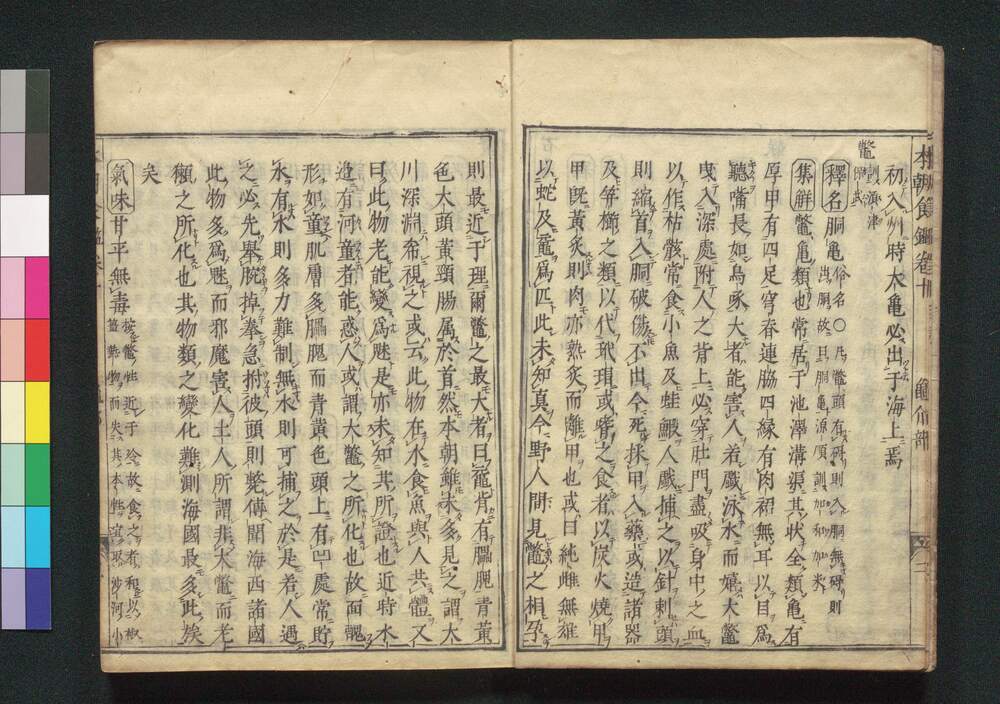 本朝食鑑卷十 龜介部 二
初入州時大亀必出于海上焉
鼈 訓須津保武
釋名 胴亀 俗名〇凡鼈頭有碍則入胴無碍則出胴故曰胴亀源順訓加和加米
集解 鼈亀類也常居于池澤溝渠其状全類亀有
原甲有四足穹脊連脇四縁有肉裙無耳以目為
聽嘴長如鳥啄大者能害人若戲泳水而嬉大鼈
曳入深處附人之背上必穿肚門盡吸身中之血
以作枯骸常食小魚及蛙鰕人戲捕之以針刺頭
則縮首入胴破傷不出今死採甲入藥或造諸器
及笄櫛之類以代玳瑁或嗜之食者以炭火燒甲
甲既黄炙則肉亦熟炙而離甲也或曰純雌無雄
以蛇及黿為匹此未知真今野人間見鼈之相孕
則最近于理爾鼈之最大者曰黿背有腽腲青黄
色大頭黄頸腸属於首然本朝雖未多見之謂大
川深淵希視之或云此物在水食魚與人共體又
曰此物老能變為魅是亦未知其所證也近時水
邉有河童者能惑人或謂大鼈之所化也故面醜
形如童肌膚多腽腲而青黄色頭上有凹處常貯
水有水則多力難制無水則可捕之於是若人遇
之必先擧腕掉拳急拊彼頭則斃傳聞海西諸國
此物多為魅而邪魔害人土人所謂非大鼈而老
獺之所化也其物類之變化難測海國最多此族
矣
氣味 甘平無毒 按鼈性近于冷故食之者和以椒薑熱物而失其本性宜聚沙河小